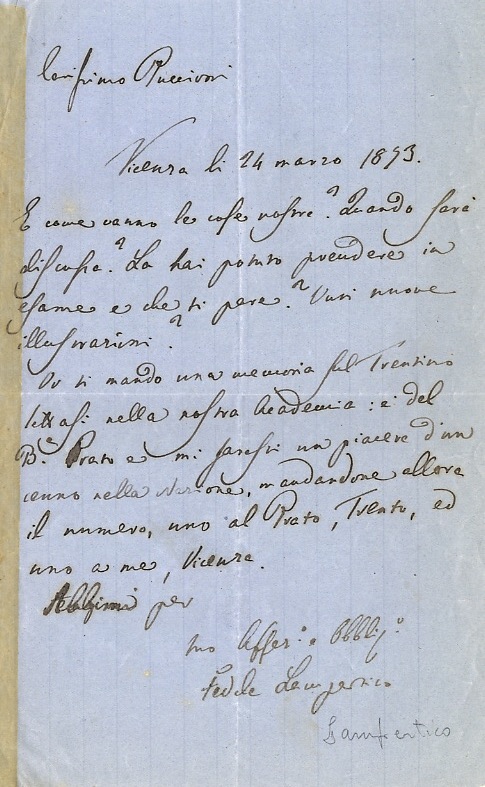 Carissimo Puccioni
Vicenza li 24 marzo 1873.
E come vanno le cose nostre? Quando sarà
discussa? La hai potuto prendere in
esame e che ti pare? Vuoi nuove
illustrazioni?
Or ti mando una memoria sul Trentino
lettasi nella nostra Academia: è del
B.e Prato e mi faresti un piacere d'un
cenno nella Nazione, mandandone allora
il numero, uno al Prato, Trento, ed
uno a me, Vicenza.
Abbimi per
tuo Affez.o e Obblig.o
Fedele Lampertico
Lampertico